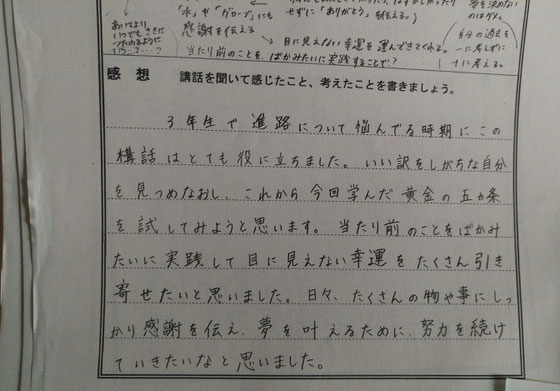 「水」や「グローブ」にも
せずに「ありがとう」を伝える。
感謝を伝える
あいてより
いつでもさきに
目に見えない幸運を運んできてくれる。
当たり前のことを、ばかみたいに実践することで?
自分の過去を
一に考えずに
十に考える。
感想 講話を聞いて感じたこと、考えたことを書きましょう。
3年生で進路について悩んでる時期にこの
構話はとても役に立ちました。いい訳をしがちな自分
を見つめなおし、これから今回学んだ黄金の五カ条
を試してみようと思います。当たり前のことをばかみ
たいに実践して目に見えない幸運をたくさん引き
寄せたいと思いました。日々、たくさんの物や事にしっ
かり感謝を伝え、夢を叶えるために、努力を続け
ていきたいなと思いました。